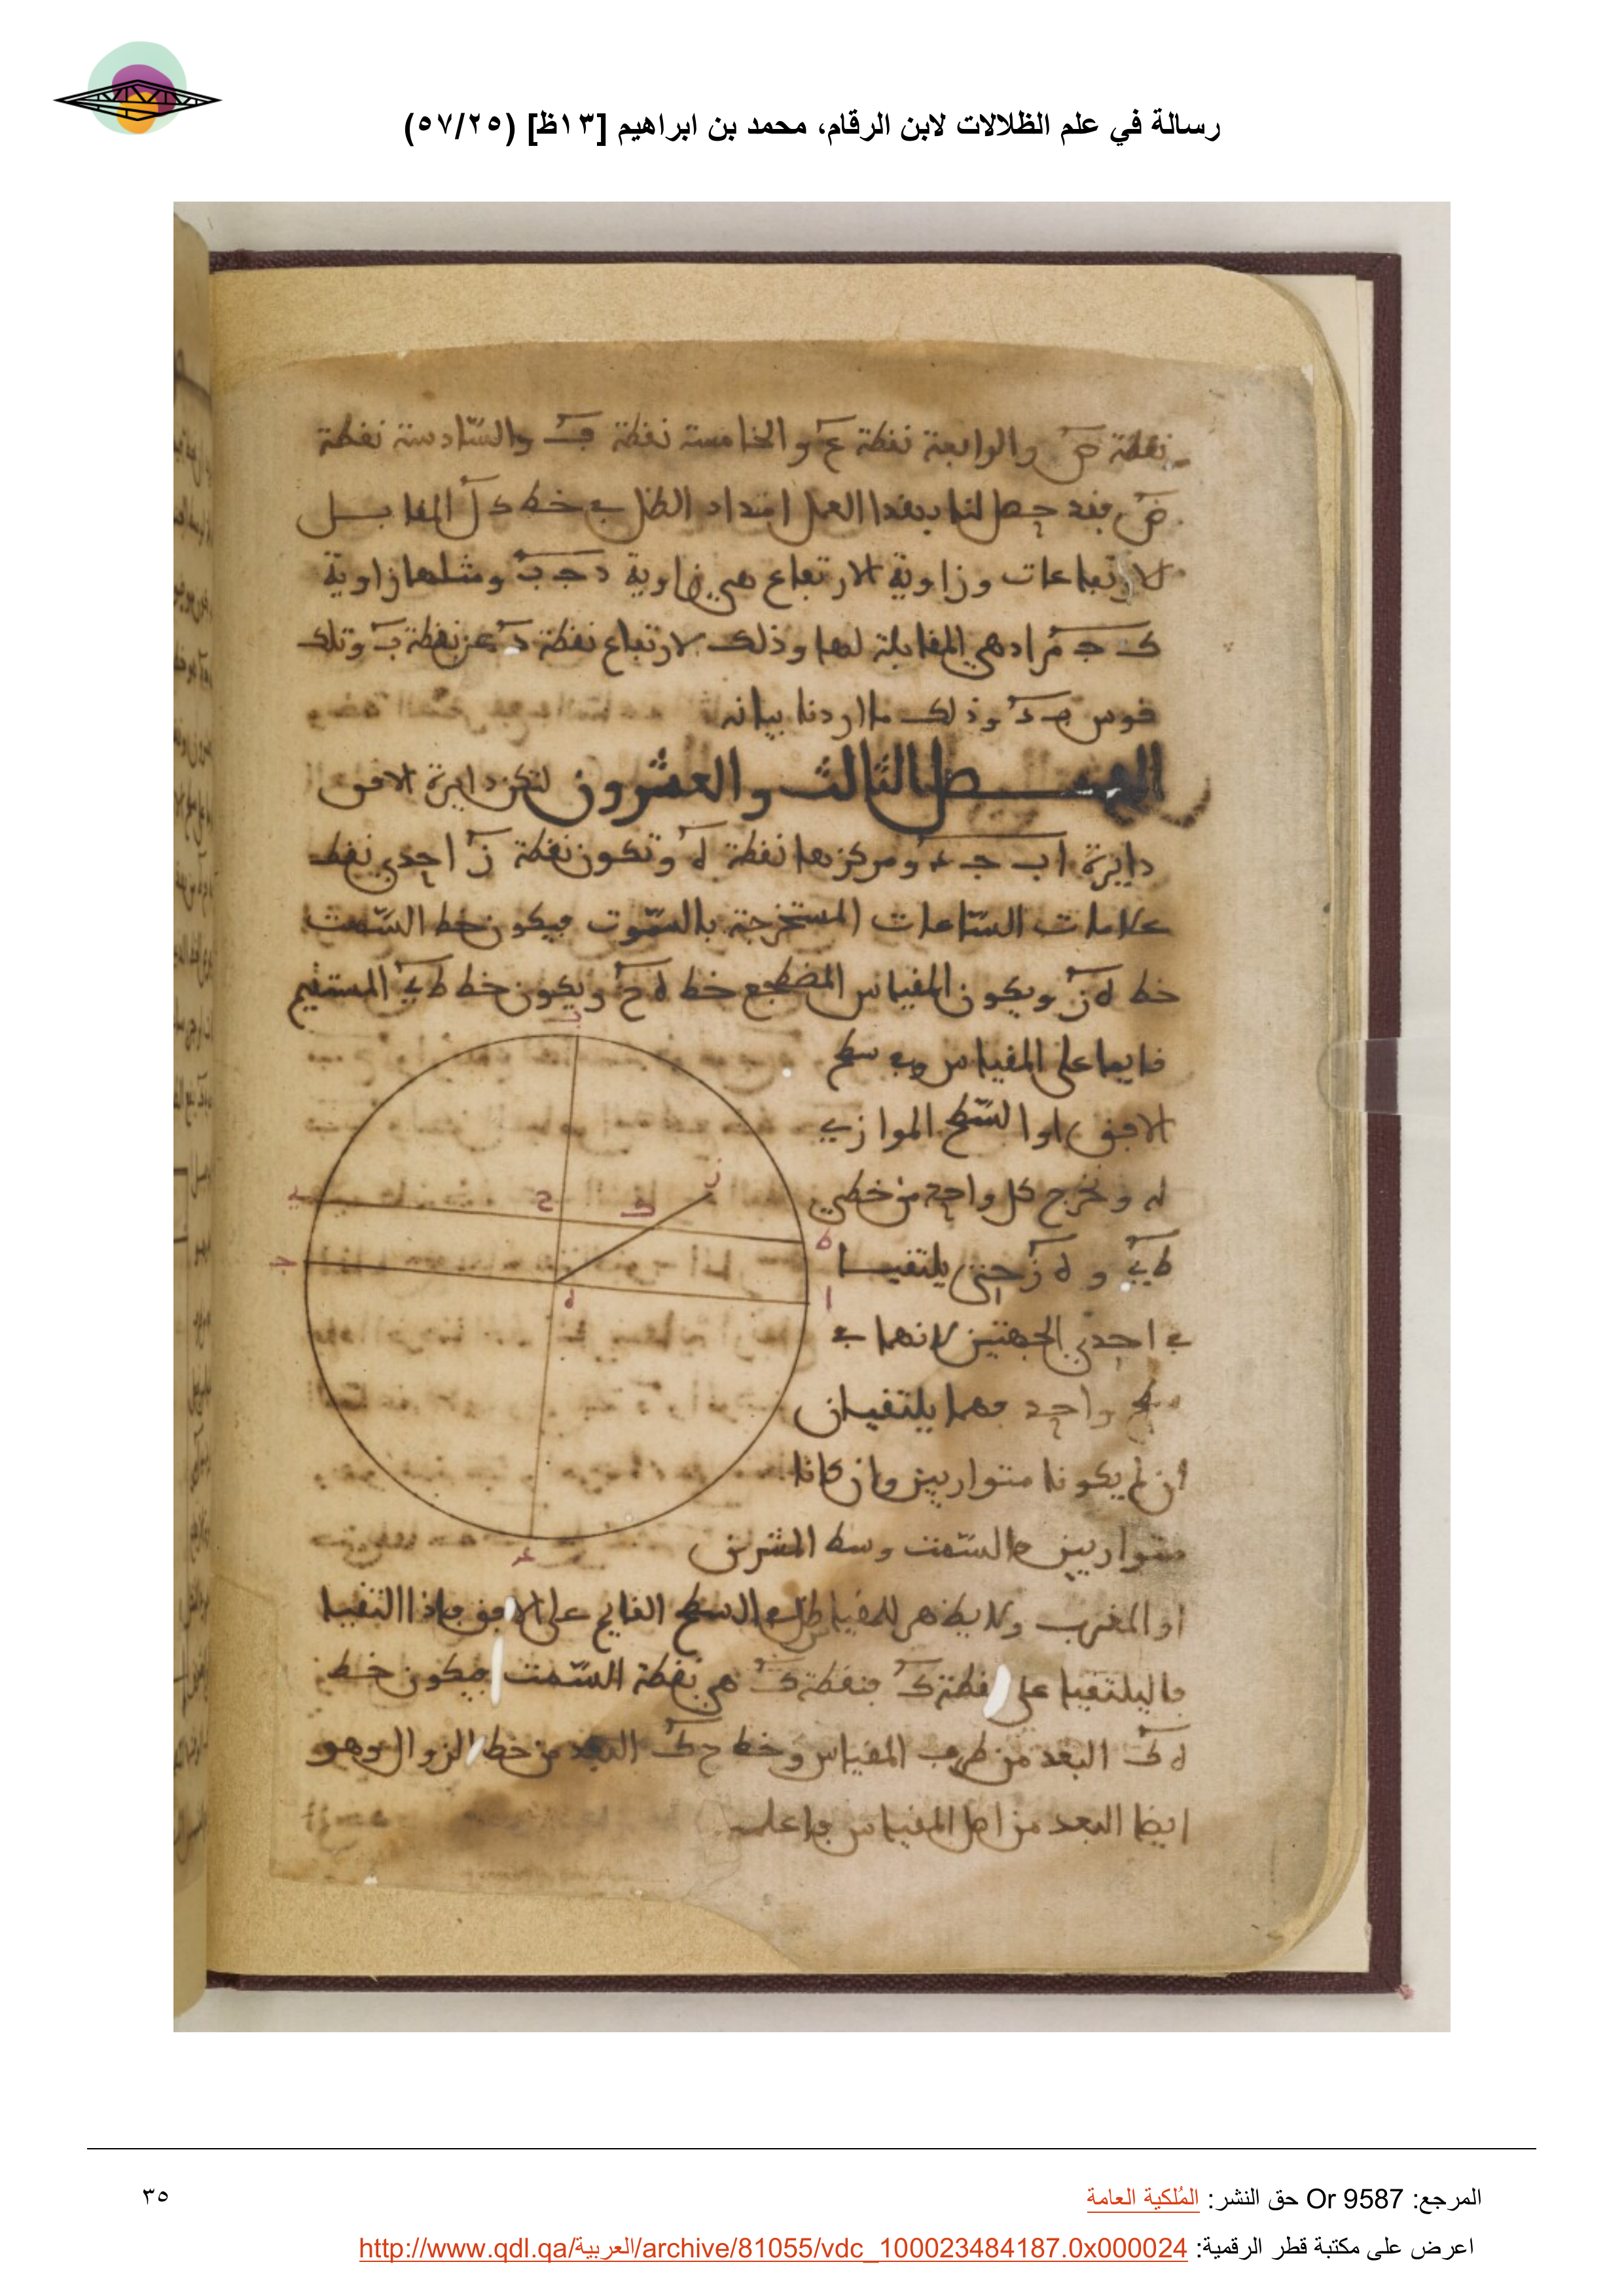 رسالة في علم الظلالات لابن الرقام، محمد بن ابراهيم [١٣ظ] (٥٧/٢٥)
نقطة ض والرابعة نقطة ع والخامسة نقطة ف والسّادسة نقطة
ض فقد حصل لنا بهذا العمل امتداد الظل في خط ك ل المقابل
لارتفاعات وزاوية الارتفاع هي زاوية د ج ب ومثلها زاوية
ك ج م اذ هي المقابلة لها وذلك لارتفاع نقطة د عن نقطة ب وتلك
قوس وذلك ما اردنا بيانه
الفصل الثالث والعشرون لتكن دايرة الافق
دايرة ا ب ج د ومركزها نقطة ه وتكون نقطة ز احدى نقط
علامات السّاعات المستخرجة بالسّموت فيكون خط السّمت
خط ه ز ويكون المقياس المضطجع خط ه ح ويكون خط ط ي المستقيم
قايما على المقياس وفي سطح
الافق او السّطح الموازي
له ونخرج كل واحد من خطي
ط ي و ه ز حتى يلتقيا
في احدى الجهتين لانهما في
سطح واحد فهما يلتقيان
ان لم يكونا متوازيين وان كانا
متوازيين فالسّمت وسط المشرق
او المغرب ولا يظهر للمقياس ظل في السطح القايم على الافق فاذا التقيا
فاليلتقيا على نقطة ك فنقطة ك هي نقطة السّمت فيكون خط
ه ك البعد من طرف المقياس وخط ح ك البعد من خط الزوال وهو
ايضا البعد من اصل المقياس فاعلمه
ب
ز
ي
ح
ك
ط
ج
ه
ا
د
المرجع: Or 9587 حق النشر: المُلكية العامة
٣٥
اعرض على مكتبة قطر الرقمية: http://www.qdl.qa/العربية/archive/81055/vdc_100023484187.0x000024